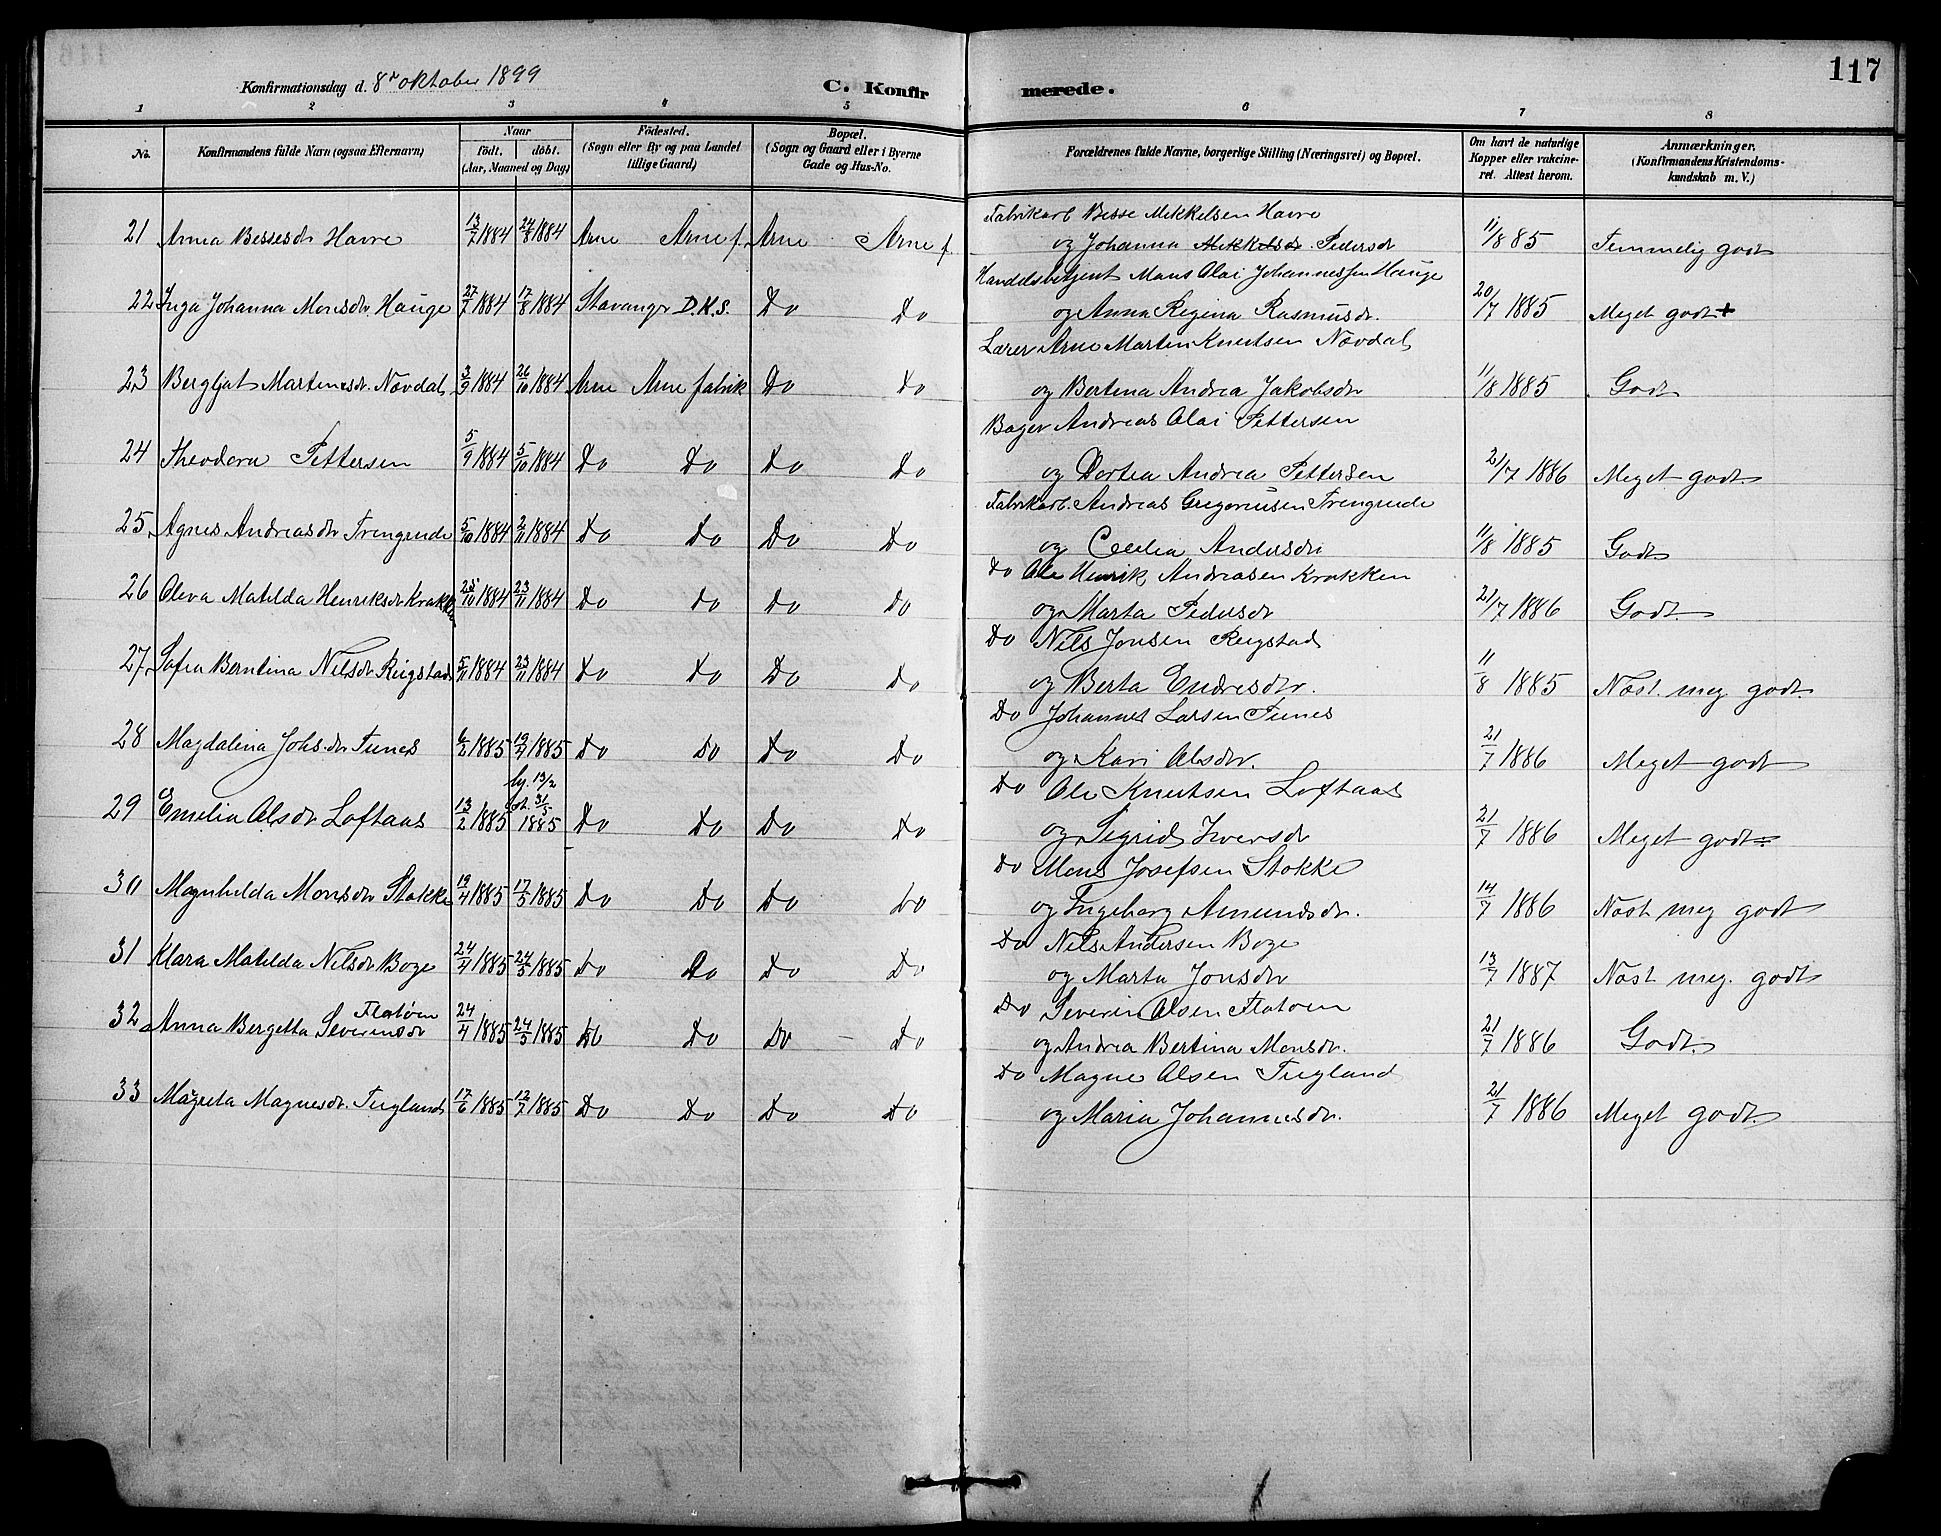 117
Konfirmationsdag d. 8de oktober 1899
C. Konfirmerede.
1 2 3 4 5 6 7 8
No. Konfirmandens fulde Navn (ogsaa Efternavn) Naar født. døbt. (Aar, Maaned og Dag) Fødested. (Sogn eller By og paa Landet tillige Gaard) Bopæl. (Sogn og Gaard eller i Byerne Gade og Hus-No. Forældrenes fulde Navne, borgerlige Stilling (Næringsvei) og Bopæl. Om havt de naturlige Kopper eller vakcineret. Attest herom. Anmærkninger. (Konfirmandens Kristendomskundskab m. V.)
Fabrikarb Besse Mikkelsen Havre
21 Anna Bessesdr Havre 13/7 1884 24/8 1884 Arne Arne f. Arne Arne f. og Johanna Mikkelsdr. Pedersdr 11/8 85 Temmelig godt
Handelsbetjent Mons Olai Johannessen Hauge
22 Inga Johanna Monsdr. Hauge 27/7 1884 17/8 1884 Stavanger D.K.S. Do Do og Anna Regina Rasmusdr. 20/7 1885 Meget godt +
Lærer Arne Martin Knutsen Növdal
23 Bergljot Martinesdr. Növdal 3/9 1884 26/10 1884 Arne Arne fabrik Do Do og Bertina Andrea Jakobsdr 11/8 1885 Godt
Bager Andreas Olai Pettersen
24 Theodora Pettersen 5/9 1884 5/10 1884 Do Do Do Do og Dortea Andrea Pettersen 21/7 1886 Meget godt
Fabrikarb. Andreas Gregoriusen Trengreide
25. Agnes Andreasdr Trengreide 5/10 1884 2/11 1884 Do Do Do Do og Cecilia Andersdr 11/8 1885 Godt
Do Ole Henrik Andreasen Krakken
26 Oleva Matilda Henriksdr Krakken 25/10 1884 23/11 1884 Do Do Do Do og Marta Pedersdr 21/7 1886 Godt.
Do Nils Jonsen Rugstad
27. Sofia Berntina Nilsdr Rugstad 5/11 1884 23/11 1884 Do Do Do Do og Berta Endresdtr. 11/8 1885 Næst meg godt.
Do Johannes Larsen Tunes
28 Magdalina Johsdr Tunes 6/2 1885 19/4 1885 Do Do Do Do og Kari Olsdtr. 21/7 1886 Meget godt
Do Ole Knutsen Loftaas
29 Emelia Olsdr Loftaas 13/2 1885 hj. 13/2 st. 31/5 1885 Do Do Do Do og Sigrid Iversdr 21/7 1886 Meget godt
Do Mons Josefsen Stokke
30 Magnhilda Monsdr Stokke 19/4 1885 17/5 1885 Do Do Do Do og Ingeborg Amundsdr. 14/7 1886 Næst meg godt
Do Nils Andersen Boge
31 Klara Matilda Nilsdr Boge 24/4 1885 24/5 1885 Do Do Do Do og Marta Jonsdr 13/7 1887 Næst meg. godt
Do Severin Olsen Flatøen
32 Anna Bergetta Severinsdr Flatøen 24/4 1885 24/5 1885 Do Do Do – Do og Andrea Bertina Monsdr. 21/7 1886 Godt.
Do Magne Olsen Tugland
33 Magreta Magnesdr. Tugland 17/6 1885 12/7 1885 Do Do Do Do og Maria Johannesdr. 21/7 1886 Meget godt.